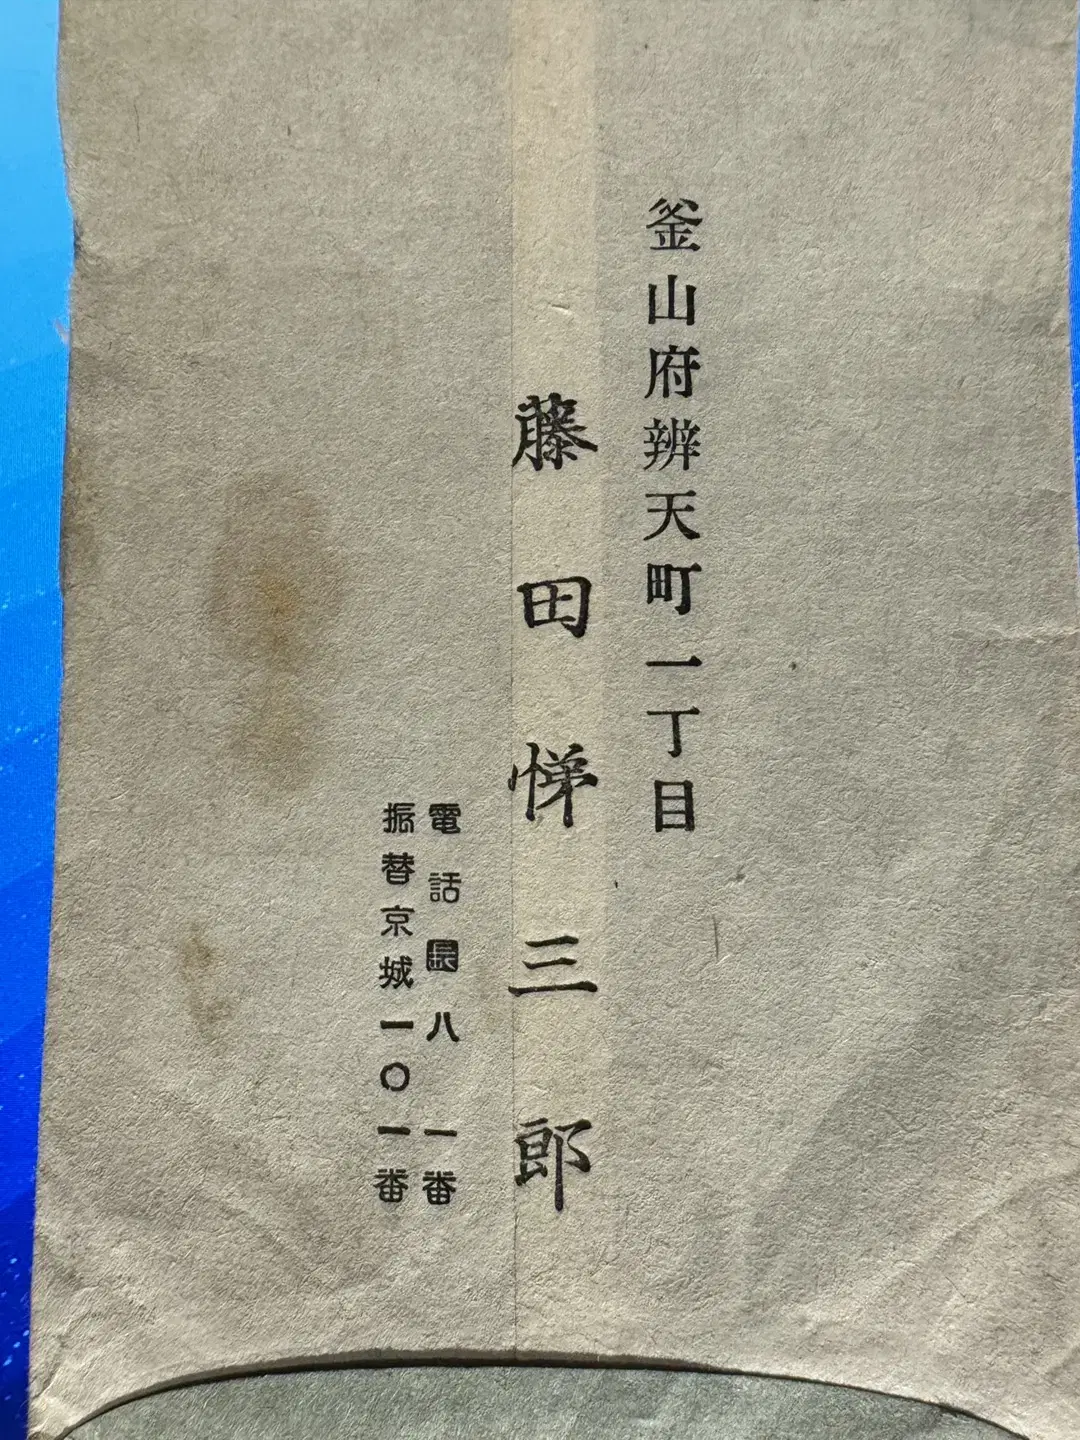 釜山府辨天町一丁目
藤田悌三郎
電話長八一番
振替京城一〇一番